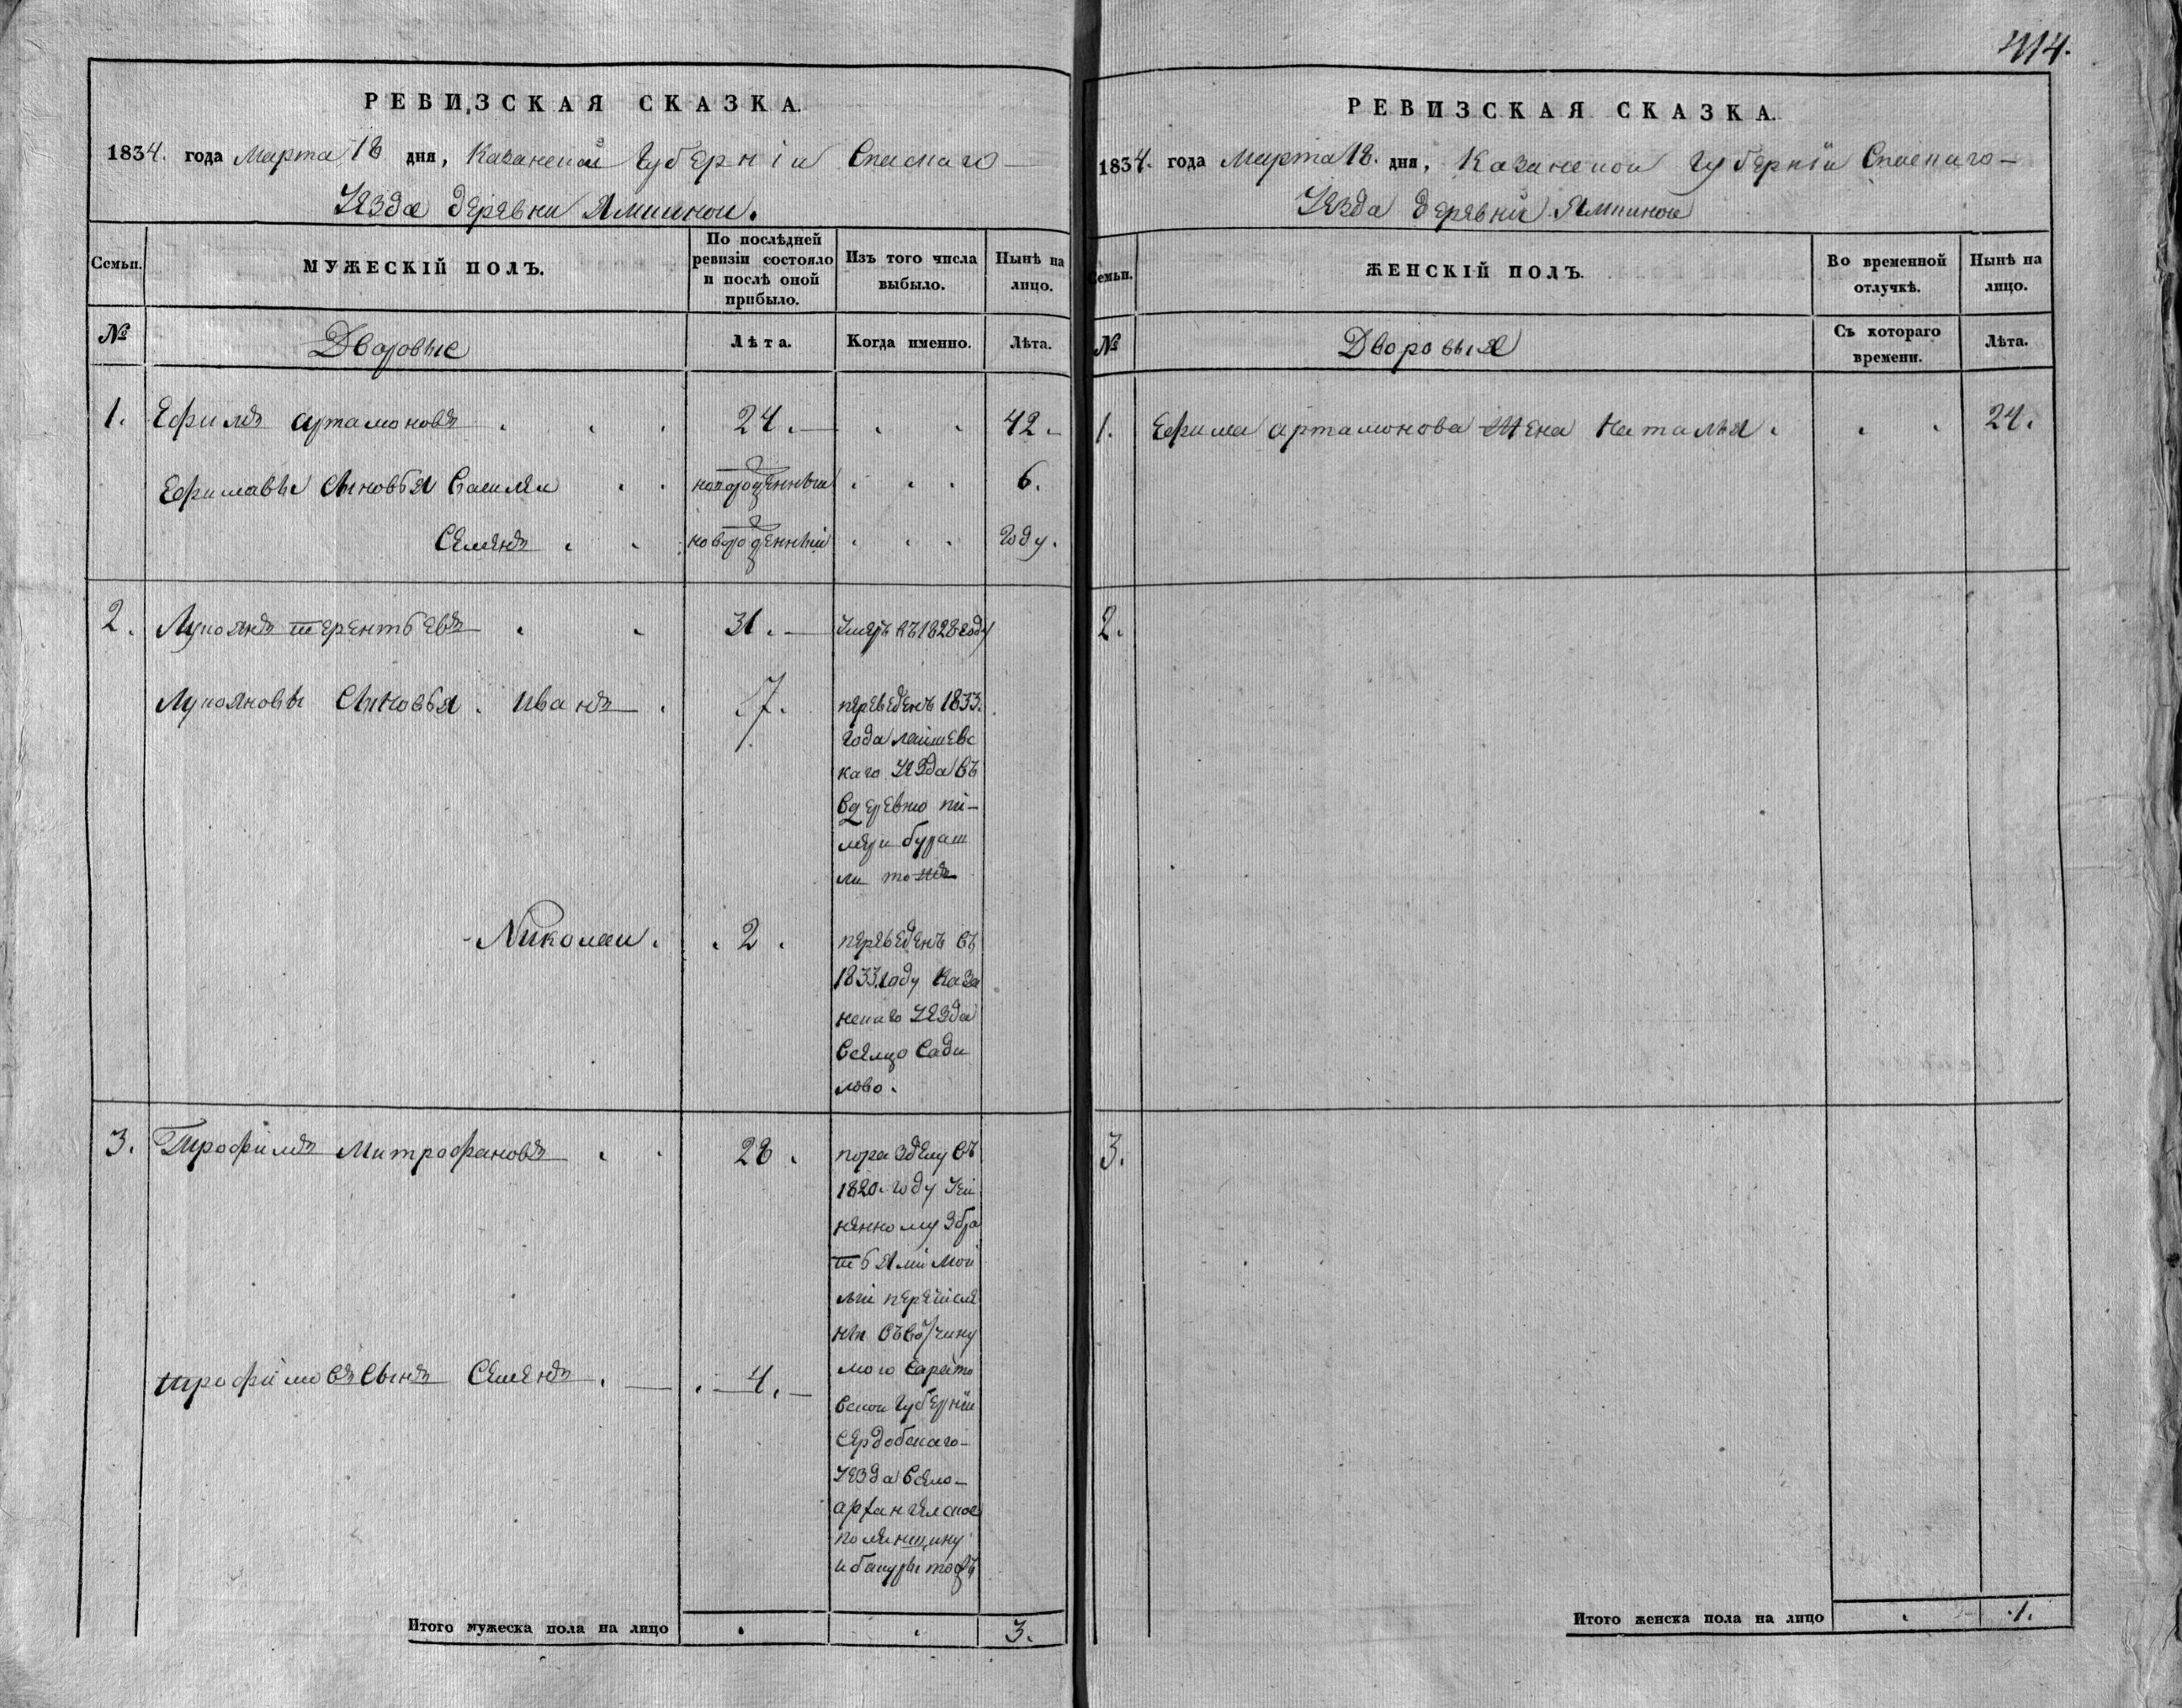 414.
РЕВИЗСКАЯ СКАЗКА.
1834. года Марта 18 дня, Казанской Губерніи Спаскаго
Уезда деревни Ямкиной.
Семьи.
МУЖЕСКІЙ ПОЛЪ.
По послѣдней ревизіи состояло и послѣ оной прибыло.
Изъ того числа выбыло.
Нынѣ на лицо.
№
Дворовые
Лѣта.
Когда именно.
Лѣта.
1. Ефимъ артамоновъ 24. 42.
Ефимовы сыновья Василеи новорожденныи 6.
Семенъ новорожденныи году.
2. Лукоянъ терентьевъ 31. умеръ въ 1828 году
Лукояновы сыновья. иванъ 7. переведенъ 1833.
года лаишевс
каго уезда въ
вдеревню
тожъ
Николаи. 2. переведенъ въ
1833. году каза
нскаго уезда
всельцо сади
лово.
3. Трофимъ Митрофановъ 28. поразделу въ
1820. году учи
ненному збра
тьями мои
ми перечисле
ны въвотчину
мою сарато
трофимовъ сынъ Семенъ. 4.
вскои губерніи
сердобскаго
уезда всело
архангелское
тожъ
Итого мужеска пола на лицо 3.
РЕВИЗСКАЯ СКАЗКА.
1834. года Марта 18. дня, Казанской губерніи Спаскаго
Уезда деревни Ямкиной
Семьи.
ЖЕНСКІЙ ПОЛЪ.
Во временной отлучкѣ.
Нынѣ на лицо.
№
Дворовыя
Съ котораго времени.
Лѣта.
1. Ефима артамонова жена Наталья. 24.
2.
3.
Итого женска пола на лицо 1.